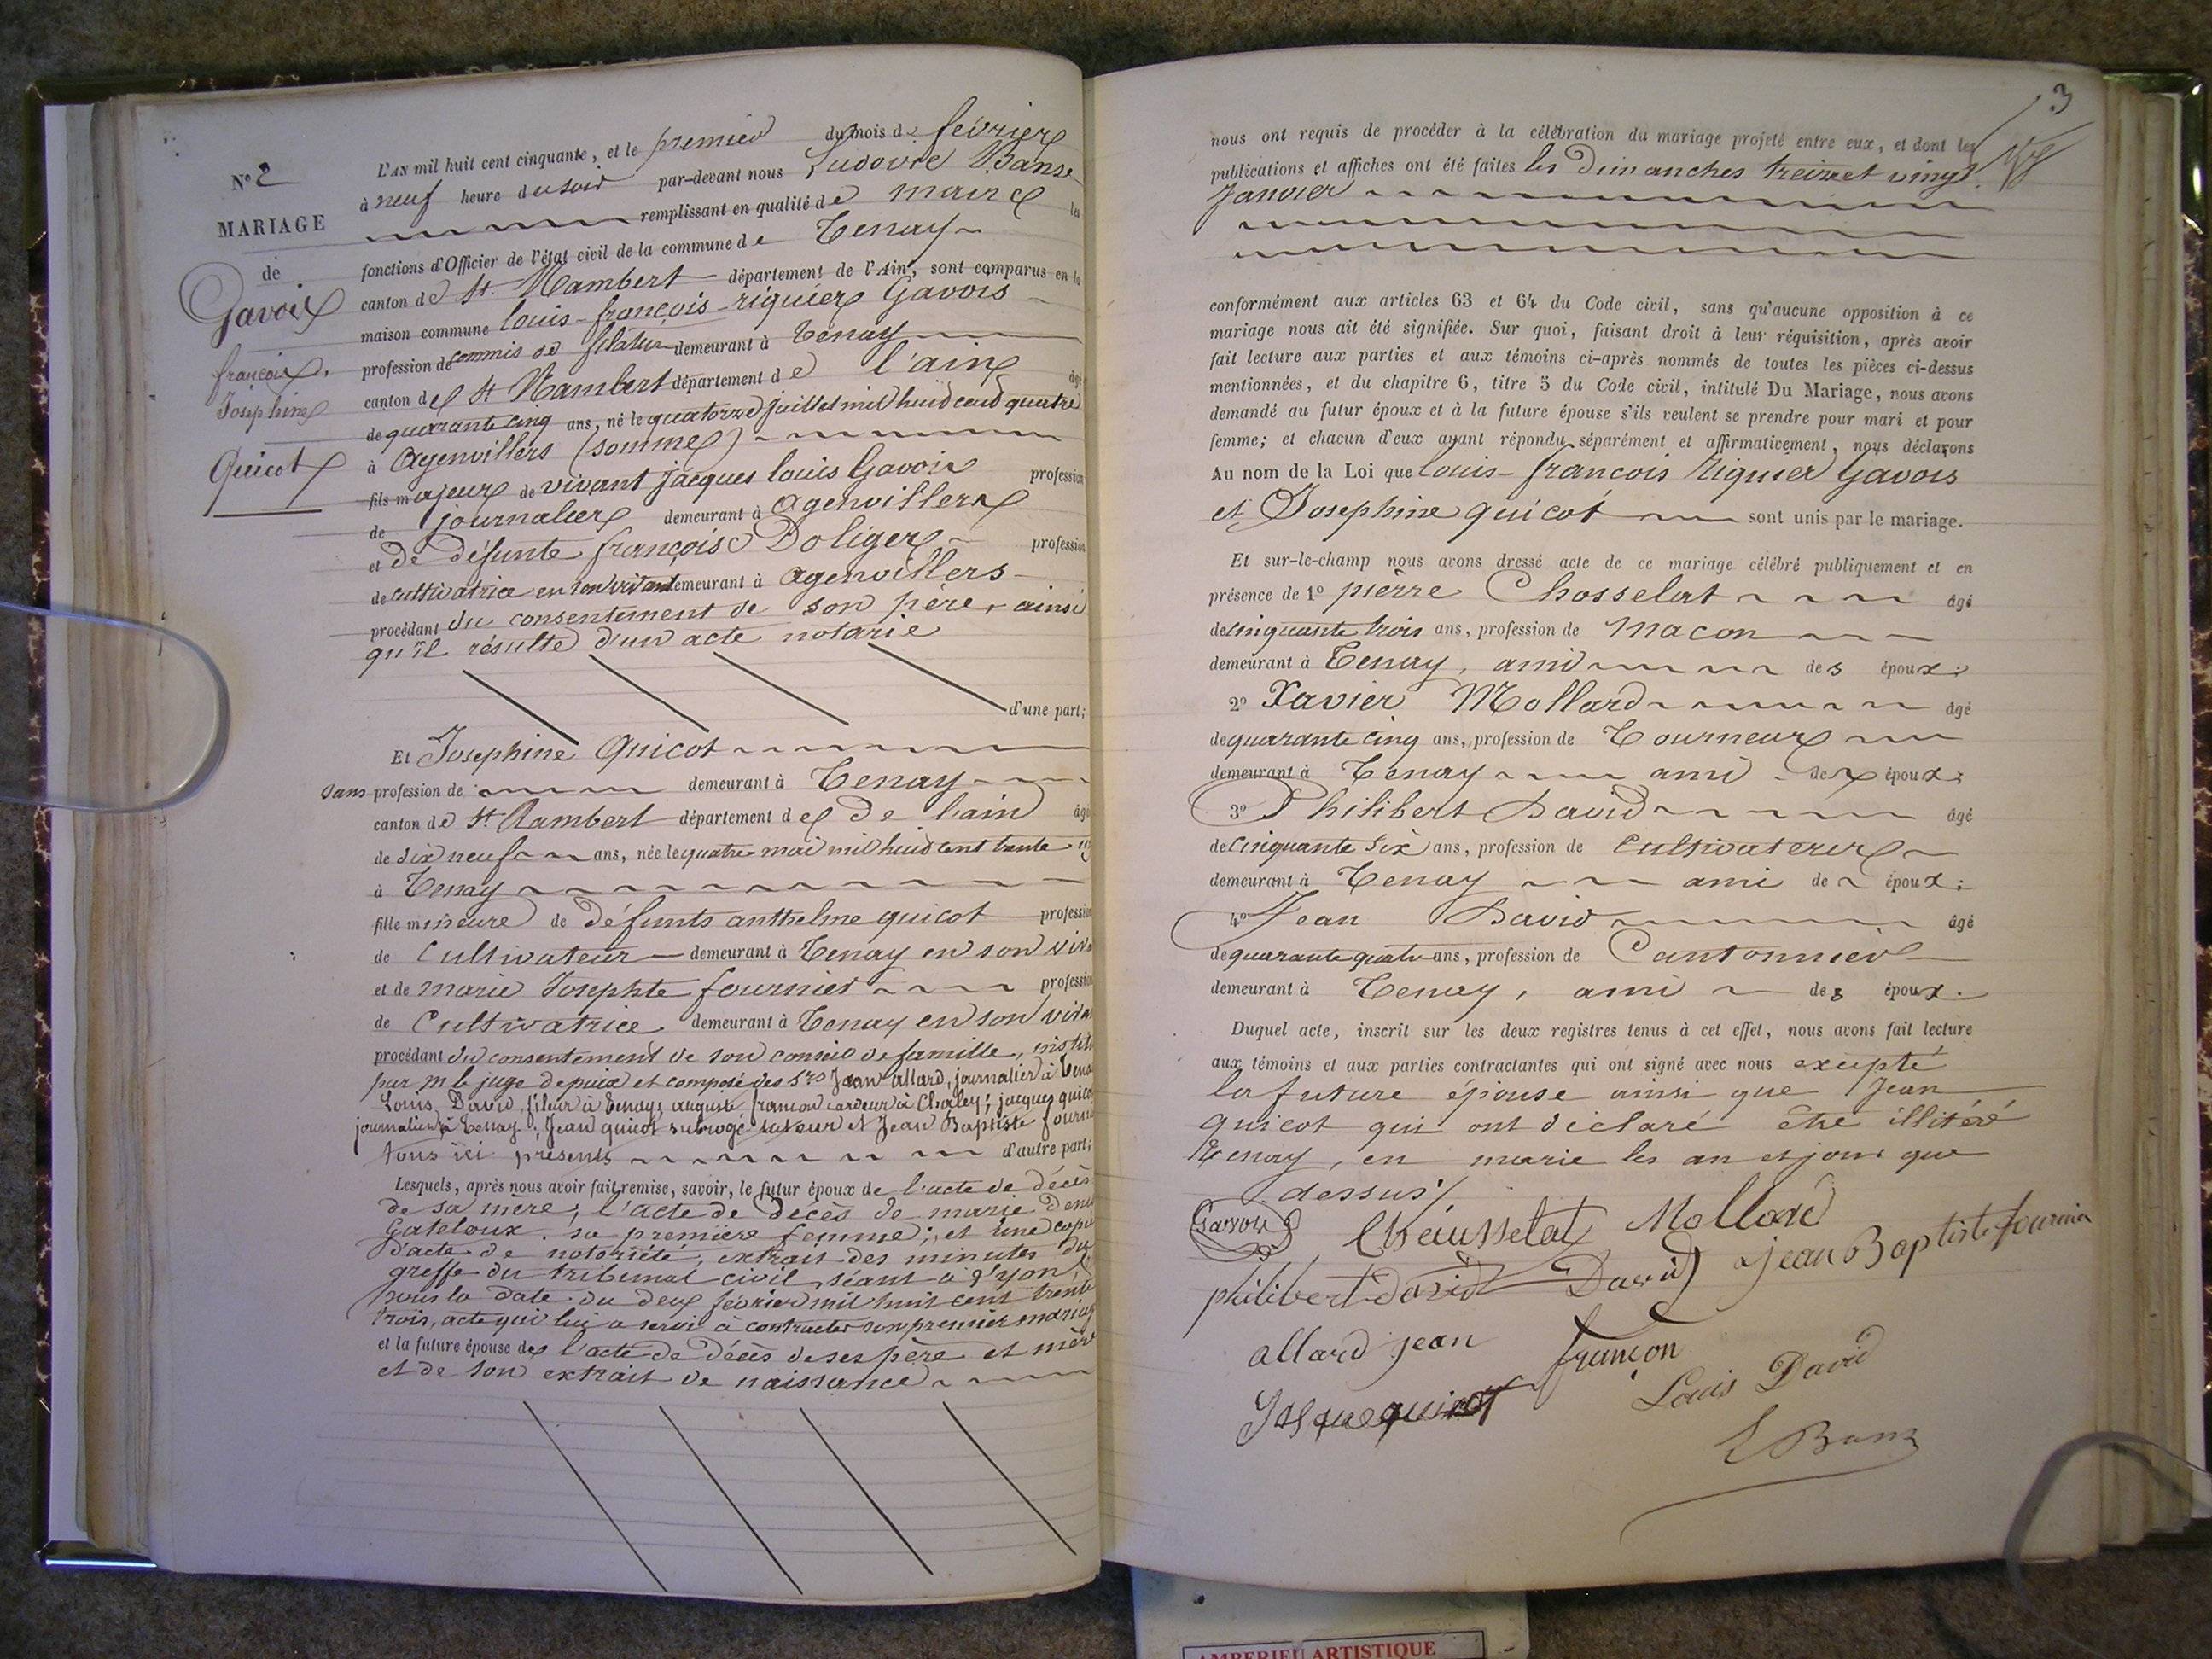 N° 2
MARIAGE
de
Gavois
françois.
Josephine
Quicot
L'AN mil huit cent cinquante, et le premier du mois de février
à neuf heure du soir par-devant nous Ludovic Banse
remplissant en qualité de maire les
fonctions d'Officier de l'état civil de la commune de Tenay
canton de St Rambert département de l'Ain, sont comparus en la
maison commune louis-françois-riquier Gavois
profession de commis de filature demeurant à Tenay
canton de St Rambert département de l'ain âgé
de quarante cinq ans, né le quatorze juillet mil huit cent quatre
à Agenvillers (somme)
fils majeur de vivant jacques louis Gavois profession
de journalier demeurant à agenvillers
et de défunte françoise Doliger profession
de cultivatrice en son vivant demeurant à agenvillers
procédant du consentement de son père, ainsi
qu'il résulte d'un acte notarié
d'une part;
Et Josephine Quicot
sans profession de demeurant à Tenay
canton de St Rambert département de de l'ain âgé
de dix neuf ans, née le quatre mai mil huit cent trente
à Tenay
fille mineure de défunts anthelme quicot profession
de Cultivateur demeurant à Tenay en son viva
et de marie Josephte fournier profession
de Cultivatrice demeurant à Tenay en son viva
procédant du consentement de son conseil de famille, institu
par m le juge de paix et composé des Srs Jean allard, journalier à Tena
Louis David, fileur à Tenay; auguste françon cardeur à Chaley; jacques quico
journalier à Tenay; Jean quicot subrogé tuteur et Jean Baptiste fourni
tous ici présents d'autre part;
Lesquels, après nous avoir fait remise, savoir, le futur époux de l'acte de décès
de sa mère; l'acte de décès de marie Deni
Gateloux. sa première femme; et une copie
d'acte de notoriété, extrait des minutes du
greffe du tribunal civil séant à Lyon
sous la date du deux février mil huit cent trente
trois, acte qui lui a servi à contracter son premier mariag
et la future épouse de l'acte de décès de ses père et mère
et de son extrait de naissance
3
nous ont requis de procéder à la célébration du mariage projeté entre eux, et dont les
publications et affiches ont été faites les Dimanches treize et vingt
Janvier
conformément aux articles 63 et 64 du Code civil, sans qu'aucune opposition à ce
mariage nous ait été signifiée. Sur quoi, faisant droit à leur réquisition, après avoir
fait lecture aux parties et aux témoins ci-après nommés de toutes les pièces ci-dessus
mentionnées, et du chapitre 6, titre 5 du Code civil, intitulé Du Mariage, nous avons
demandé au futur époux et à la future épouse s'ils veulent se prendre pour mari et pour
femme; et chacun d'eux ayant répondu séparément et affirmativement, nous déclarons
Au nom de la Loi que louis-francois riquier Gavois
et Josephine quicot sont unis par le mariage.
Et sur-le-champ nous avons dressé acte de ce mariage célébré publiquement et en
présence de 1° pièrre Chosselat âgé
de cinquante trois ans, profession de Macon
demeurant à Tenay, ami des époux;
2° Xavier Mollard âgé
de quarante cinq ans, profession de Tourneur
demeurant à Tenay ami de époux;
3° Philibert David âgé
de cinquante six ans, profession de Cultivaterur
demeurant à Tenay ami de époux;
4° Jean David âgé
de quarante quatre ans, profession de Cantonnier
demeurant à Tenay, ami des époux.
Duquel acte, inscrit sur les deux registres tenus à cet effet, nous avons fait lecture
aux témoins et aux parties contractantes qui ont signé avec nous excepté
la future épouse ainsi que Jean
quicot qui ont déclaré être illitéré
Tenay, en marie les an et jour que
dessus
Gavois Cheausselat Mollard
philibert david David jean Baptiste fournier
allard jean françon
Louis David
Jasque quicot
L Banse
AMBERIEU ARTISTIQUE